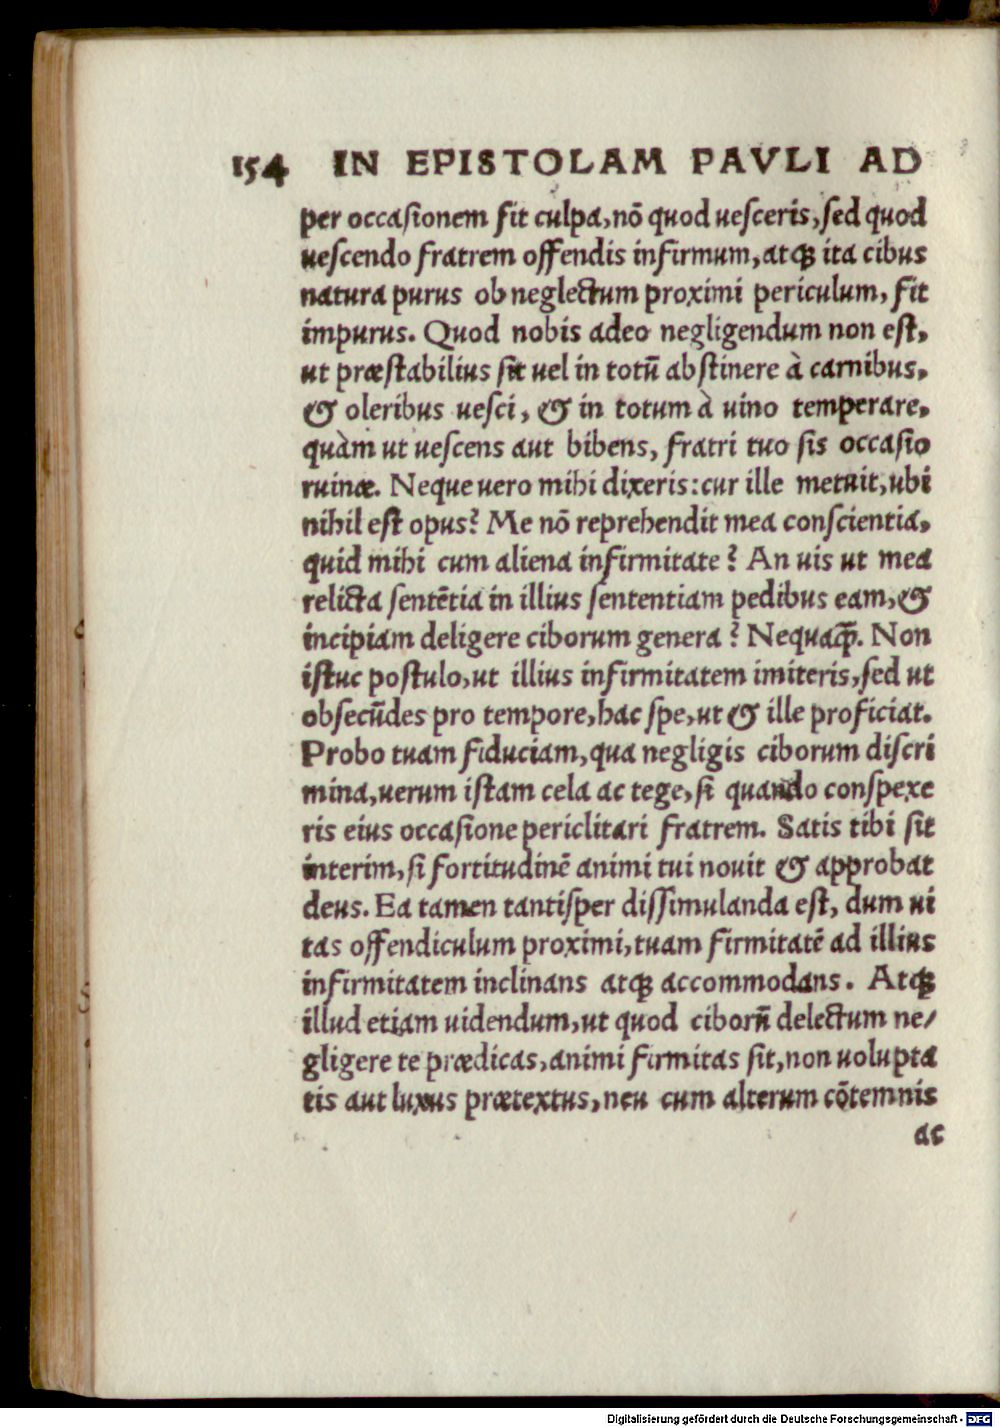 154 IN EPISTOLAM PAVLI AD
per occaſionem fit culpa, nō quod ueſceris, ſed quod
ueſcendo fratrem offendis infirmum, atqꝫ ita cibus
natura purus ob neglectum proximi periculum, fit
impurus. Quod nobis adeo negligendum non eſt,
ut præſtabilius ſit uel in totū abſtinere à carnibus,
& oleribus ueſci, & in totum à uino temperare,
quàm ut ueſcens aut bibens, fratri tuo ſis occaſio
ruinæ. Neque uero mihi dixeris: cur ille metuit, ubi
nihil eſt opus? Me nō reprehendit mea conſcientia,
quid mihi cum aliena infirmitate? An uis ut mea
relicta ſentētia in illius ſententiam pedibus eam, &
incipiam deligere ciborum genera? Nequaꝙ̃. Non
iſtuc poſtulo, ut illius infirmitatem imiteris, ſed ut
obſecūdes pro tempore, hac ſpe, ut & ille proficiat.
Probo tuam fiduciam, qua negligis ciborum diſcri
mina, uerum iſtam cela ac tege, ſi quando conſpexe
ris eius occaſione periclitari fratrem. Satis tibi ſit
interim, ſi fortitudinē animi tui nouit & approbat
deus. Ea tamen tantiſper diſſimulanda eſt, dum ui
tas offendiculum proximi, tuam firmitatē ad illius
infirmitatem inclinans atqꝫ accommodans. Atqꝫ
illud etiam uidendum, ut quod ciborū delectum ne/
gligere te prædicas, animi firmitas ſit, non uolupta
tis aut luxus prætextus, neu cum alterum cōtemnis
ac
Digitalisierung gefördert durch die Deutsche Forschungsgemeinschaft - DFG